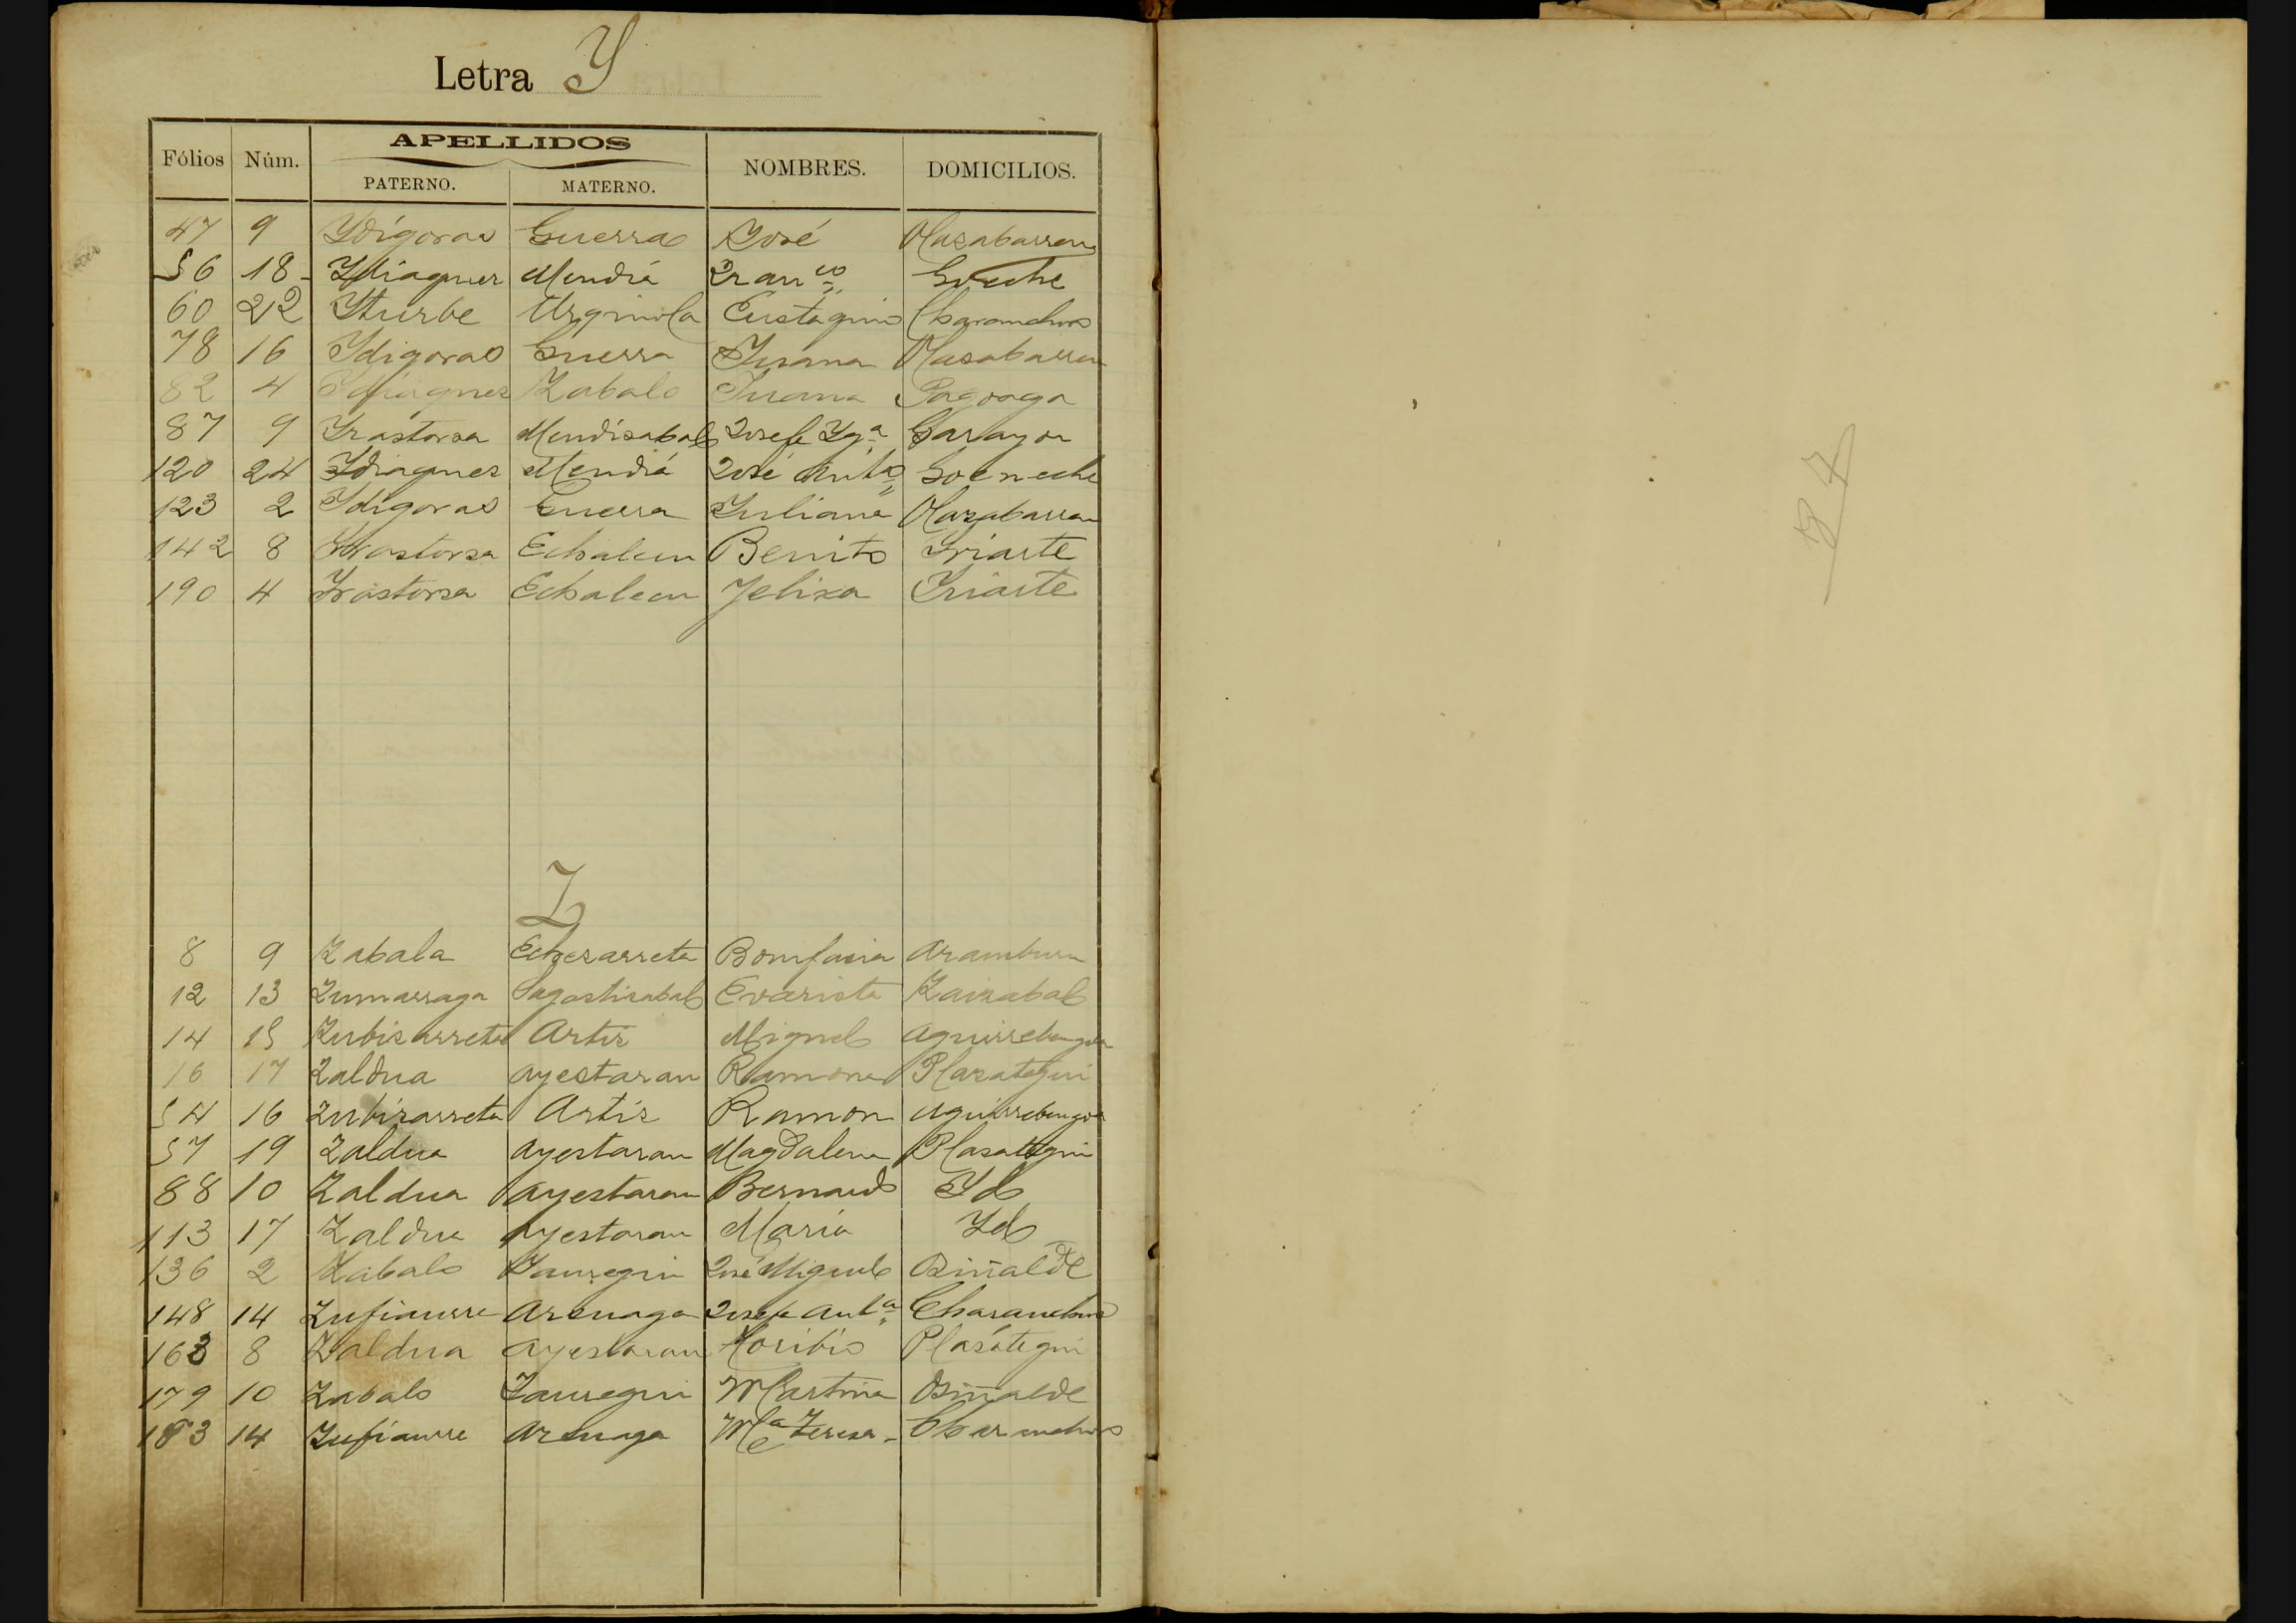 Letra Y
Fólios Núm. APELLIDOS NOMBRES. DOMICILIOS.
PATERNO. MATERNO.
47 9 Ydígoras Guerra José Olazabarren
56 18 Ydiaquez Mendía Fran.co
60 22 Yturbe Urquiola Eustaquio Charanchos
78 16 Ydigoras Guerra Juana Olazabarren
82 4 Ydiaquez Zabalo Juana Pagoaga
87 9 Yrastorza Mendizabal Josefa Yg.a Garayoa
120 24 Ydiaquez Mendía José Ant.o Goeneche
123 2 Ydígoras Guerra Juliana Olazabarren
142 8 Yrastorza Echalecu Benito Yriarte
190 4 Yrastorza Echalecu Felixa Yriarte
Z
8 9 Zabala Echezarreta Bonifacia Aramburu
12 13 Zumarraga Sagastizabal Evarista Zaizabal
14 15 Zubizarreta Artiz Miguel Aguirrebengoa
16 17 Zaldua Ayestaran Ramona Plazategui
54 16 Zubizarreta Artiz Ramon Aguirrebengoa
57 19 Zaldua Ayestaran Magdalena Plazategui
88 10 Zaldua Ayestaran Bernardo Yd
113 17 Zaldua Ayestaran María Yd
136 2 Zabalo Jauregui José Miguel Osiñalde
148 14 Zufiaurre Arsuaga Josefa Ant.a Charanchos
163 8 Zaldua Ayestaran Toribio Plazátegui
179 10 Zabalo Jauregui Martina Osiñalde
183 14 Zufiaurre Arsuaga M.a Teresa Charanchos